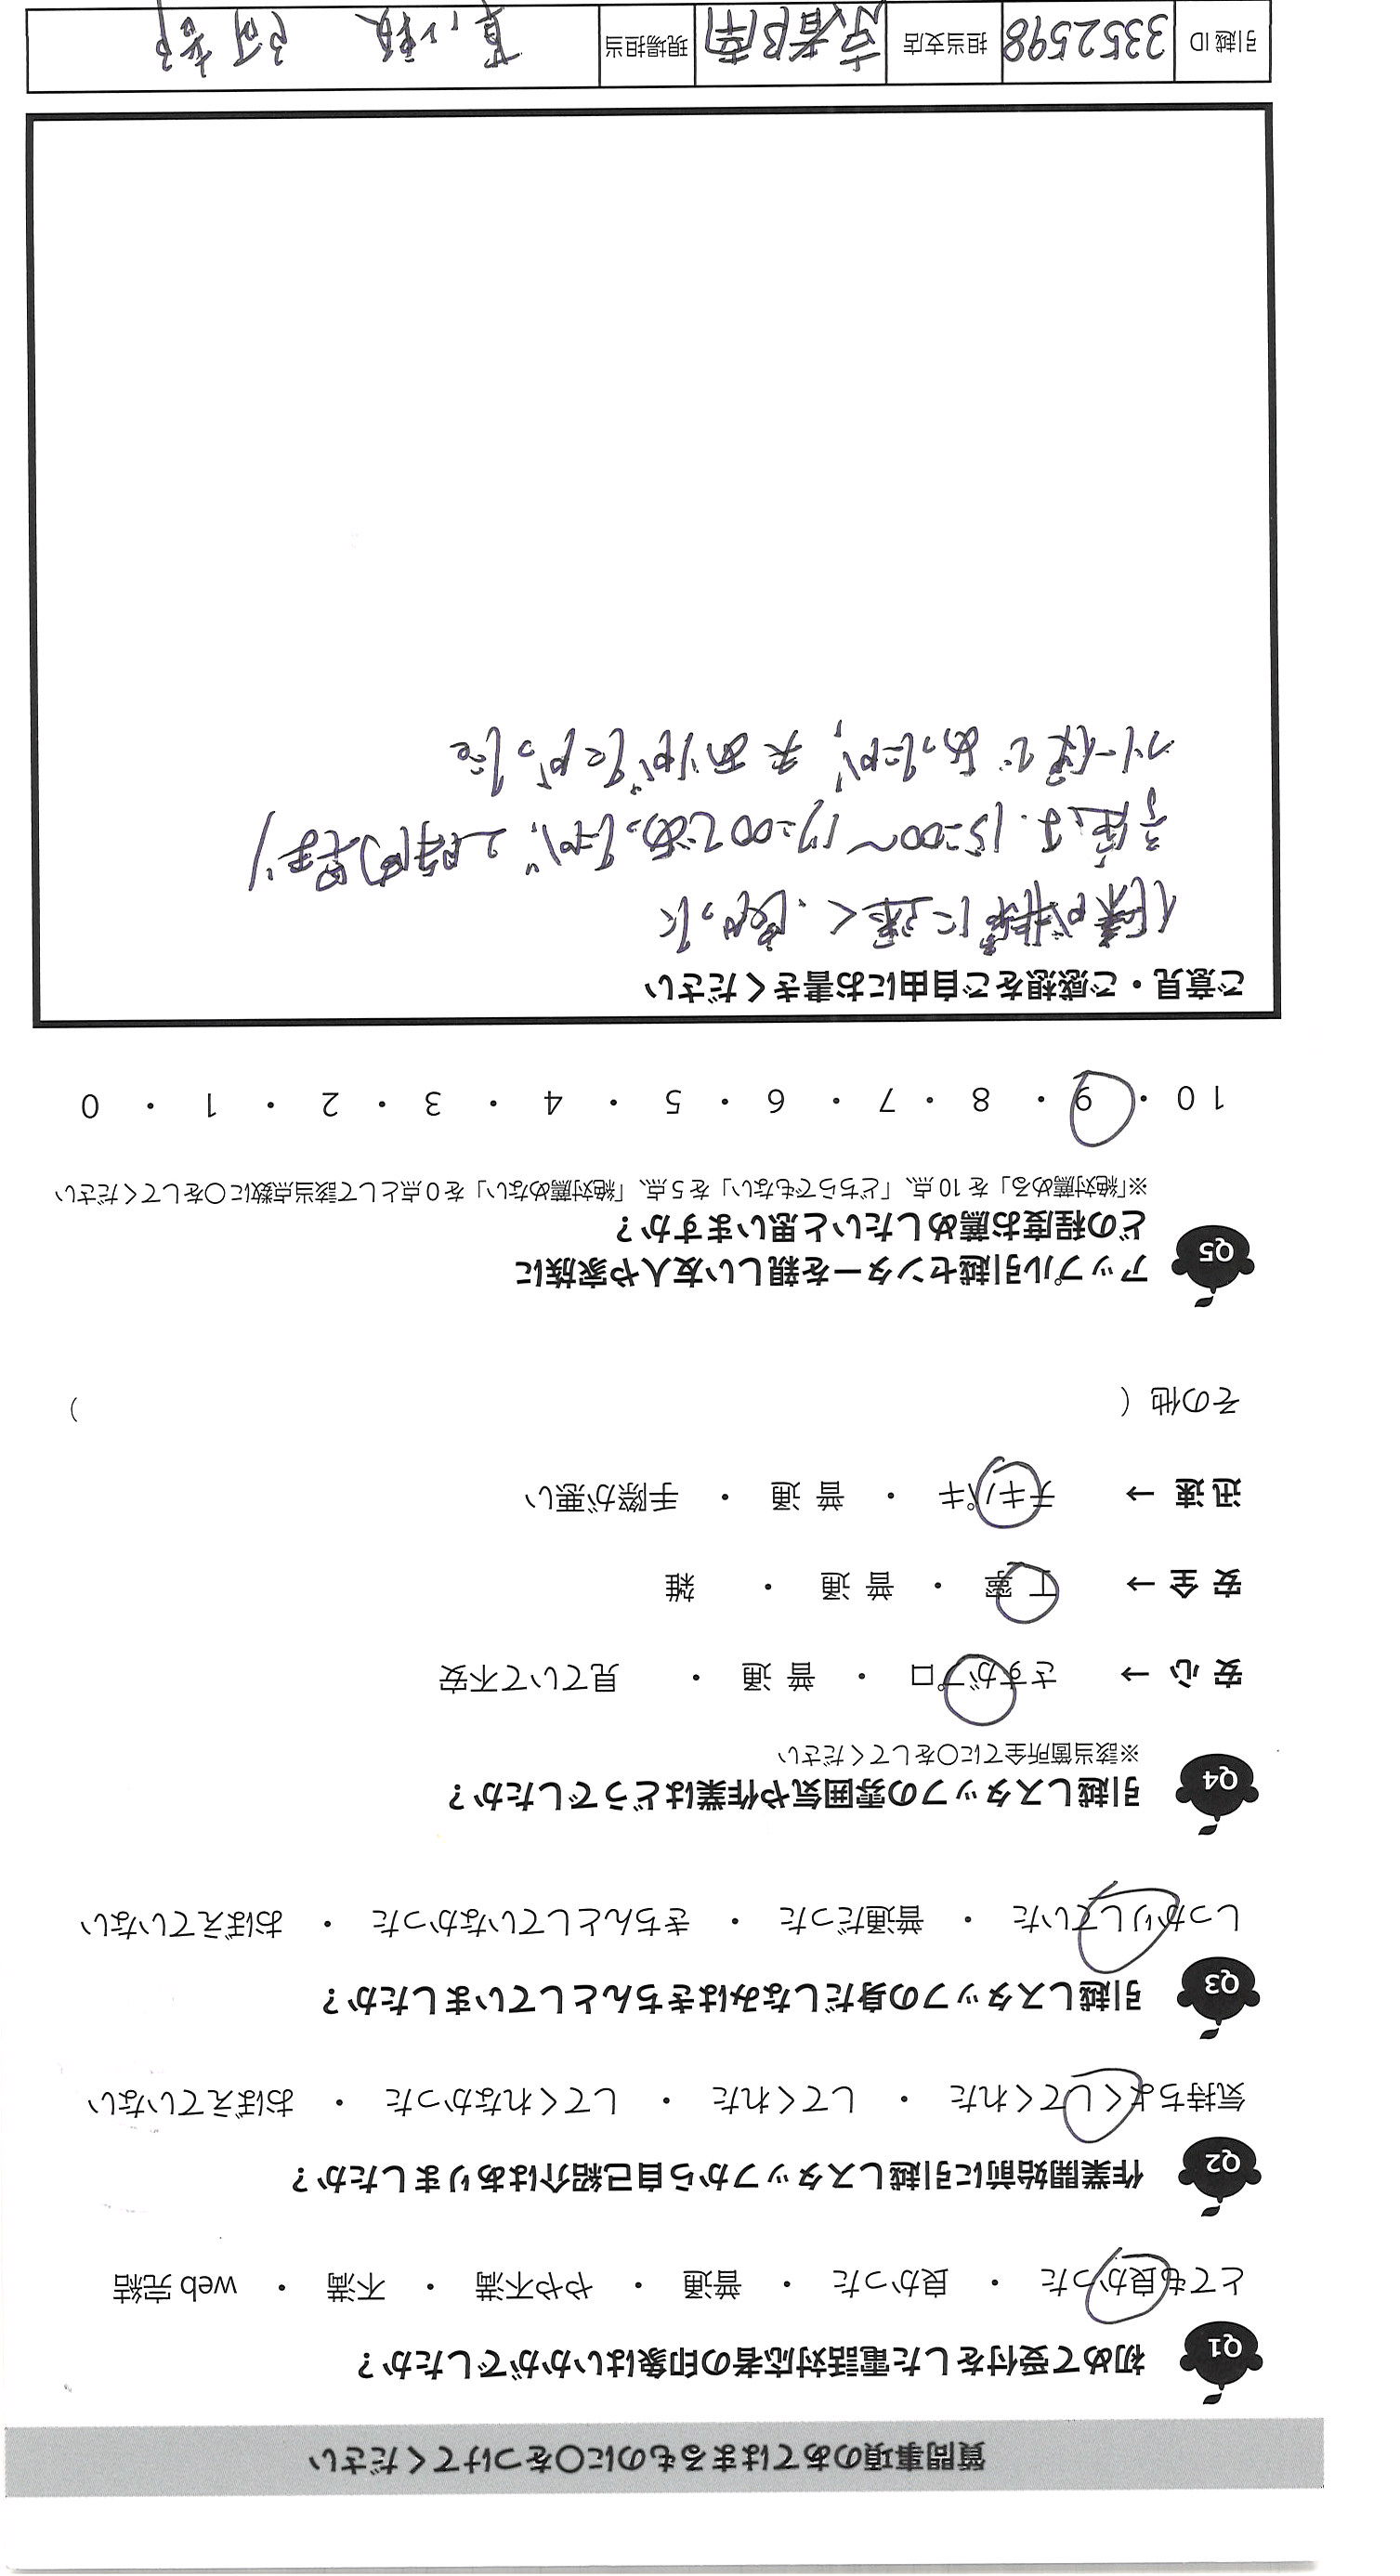 質問事項のあてはまるものに〇をつけてください
Q1 初めて受付をした電話対応者の印象はいかがでしたか？
とても良かった ・ 良かった ・ 普通 ・ やや不満 ・ 不満 ・ web 完結
Q2 作業開始前に引越しスタッフから自己紹介はありましたか？
気持ちよくしてくれた ・ してくれた ・ してくれなかった ・ おぼえていない
Q3 引越しスタッフの身だしなみはきちんとしていましたか？
しっかりしていた ・ 普通だった ・ きちんとしていなかった ・ おぼえていない
Q4 引越しスタッフの雰囲気や作業はどうでしたか？
※該当箇所全てに〇をしてください
安 心 → さすがプロ ・ 普 通 ・ 見ていて不安
安 全 → 丁 寧 ・ 普 通 ・ 雑
迅 速 → テキパキ ・ 普 通 ・ 手際が悪い
その他（ ）
Q5 アップル引越センターを親しい友人や家族に
どの程度お薦めしたいと思いますか？
※「絶対薦める」を 10 点、「どちらでもない」を 5 点、「絶対薦めない」を 0 点として該当点数に〇をしてください
10 ・ 9 ・ 8 ・ 7 ・ 6 ・ 5 ・ 4 ・ 3 ・ 2 ・ 1 ・ 0
ご意見・ご感想をご自由にお書きください
作業が非常に速く、良かった
予定は、15:00〜17:00であったが、2時間早まり
フリー便であったが、大ありがたかった。
引越 ID 3352598 担当支店 京都南 現場担当 阿部